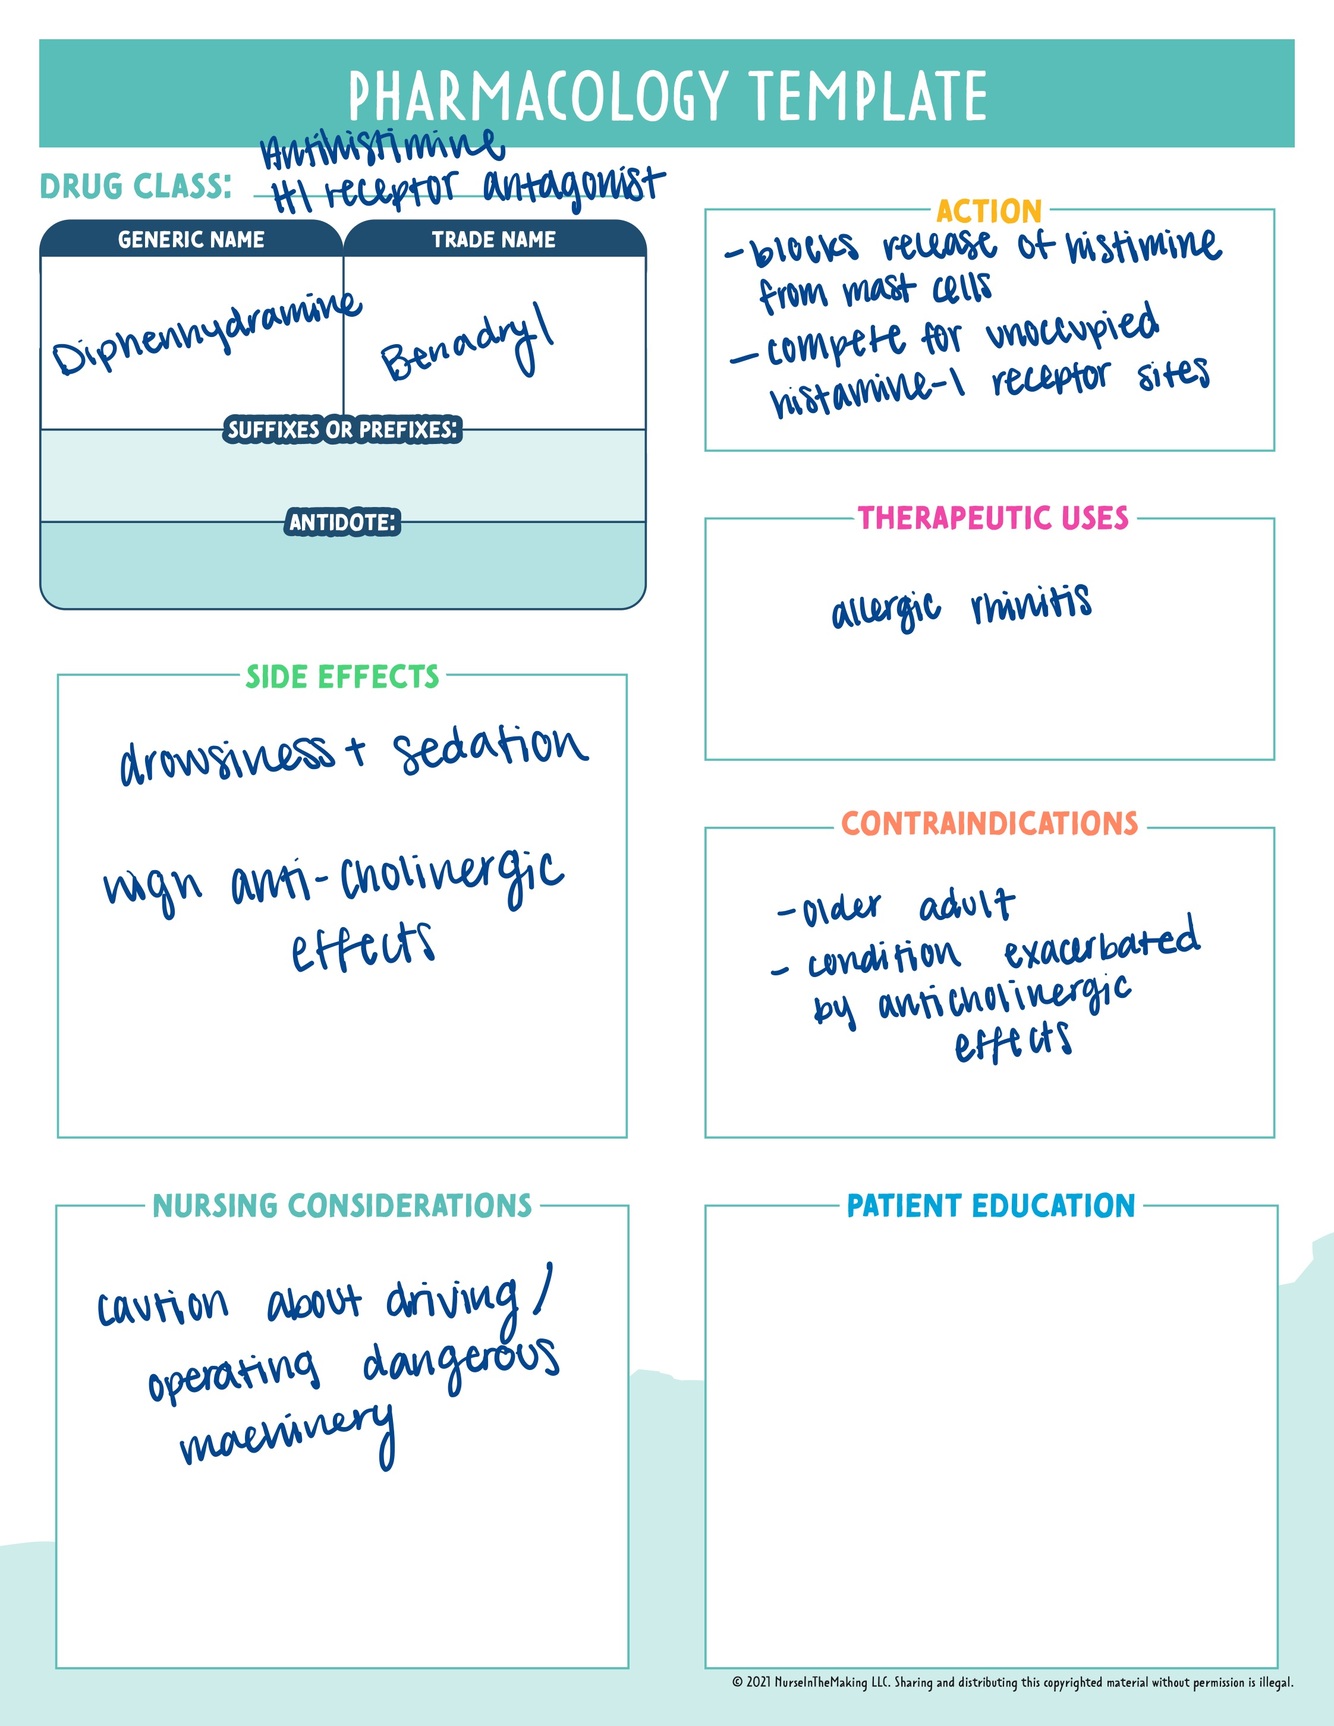 PHARMACOLOGY TEMPLATE
Antihistimine
DRUG CLASS: H1 receptor antagonist
GENERIC NAME
TRADE NAME
Diphenhydramine
Benadryl
SUFFIXES OR PREFIXES:
ANTIDOTE:
ACTION
- blocks release of histimine
from mast cells
- compete for unoccupied
histamine-1 receptor sites
THERAPEUTIC USES
allergic rhinitis
SIDE EFFECTS
drowsiness + sedation
high anti-cholinergic
effects
CONTRAINDICATIONS
- older adult
- condition exacerbated
by anticholinergic
effects
NURSING CONSIDERATIONS
caution about driving /
operating dangerous
machinery
PATIENT EDUCATION
© 2021 NurseInTheMaking LLC. Sharing and distributing this copyrighted material without permission is illegal.